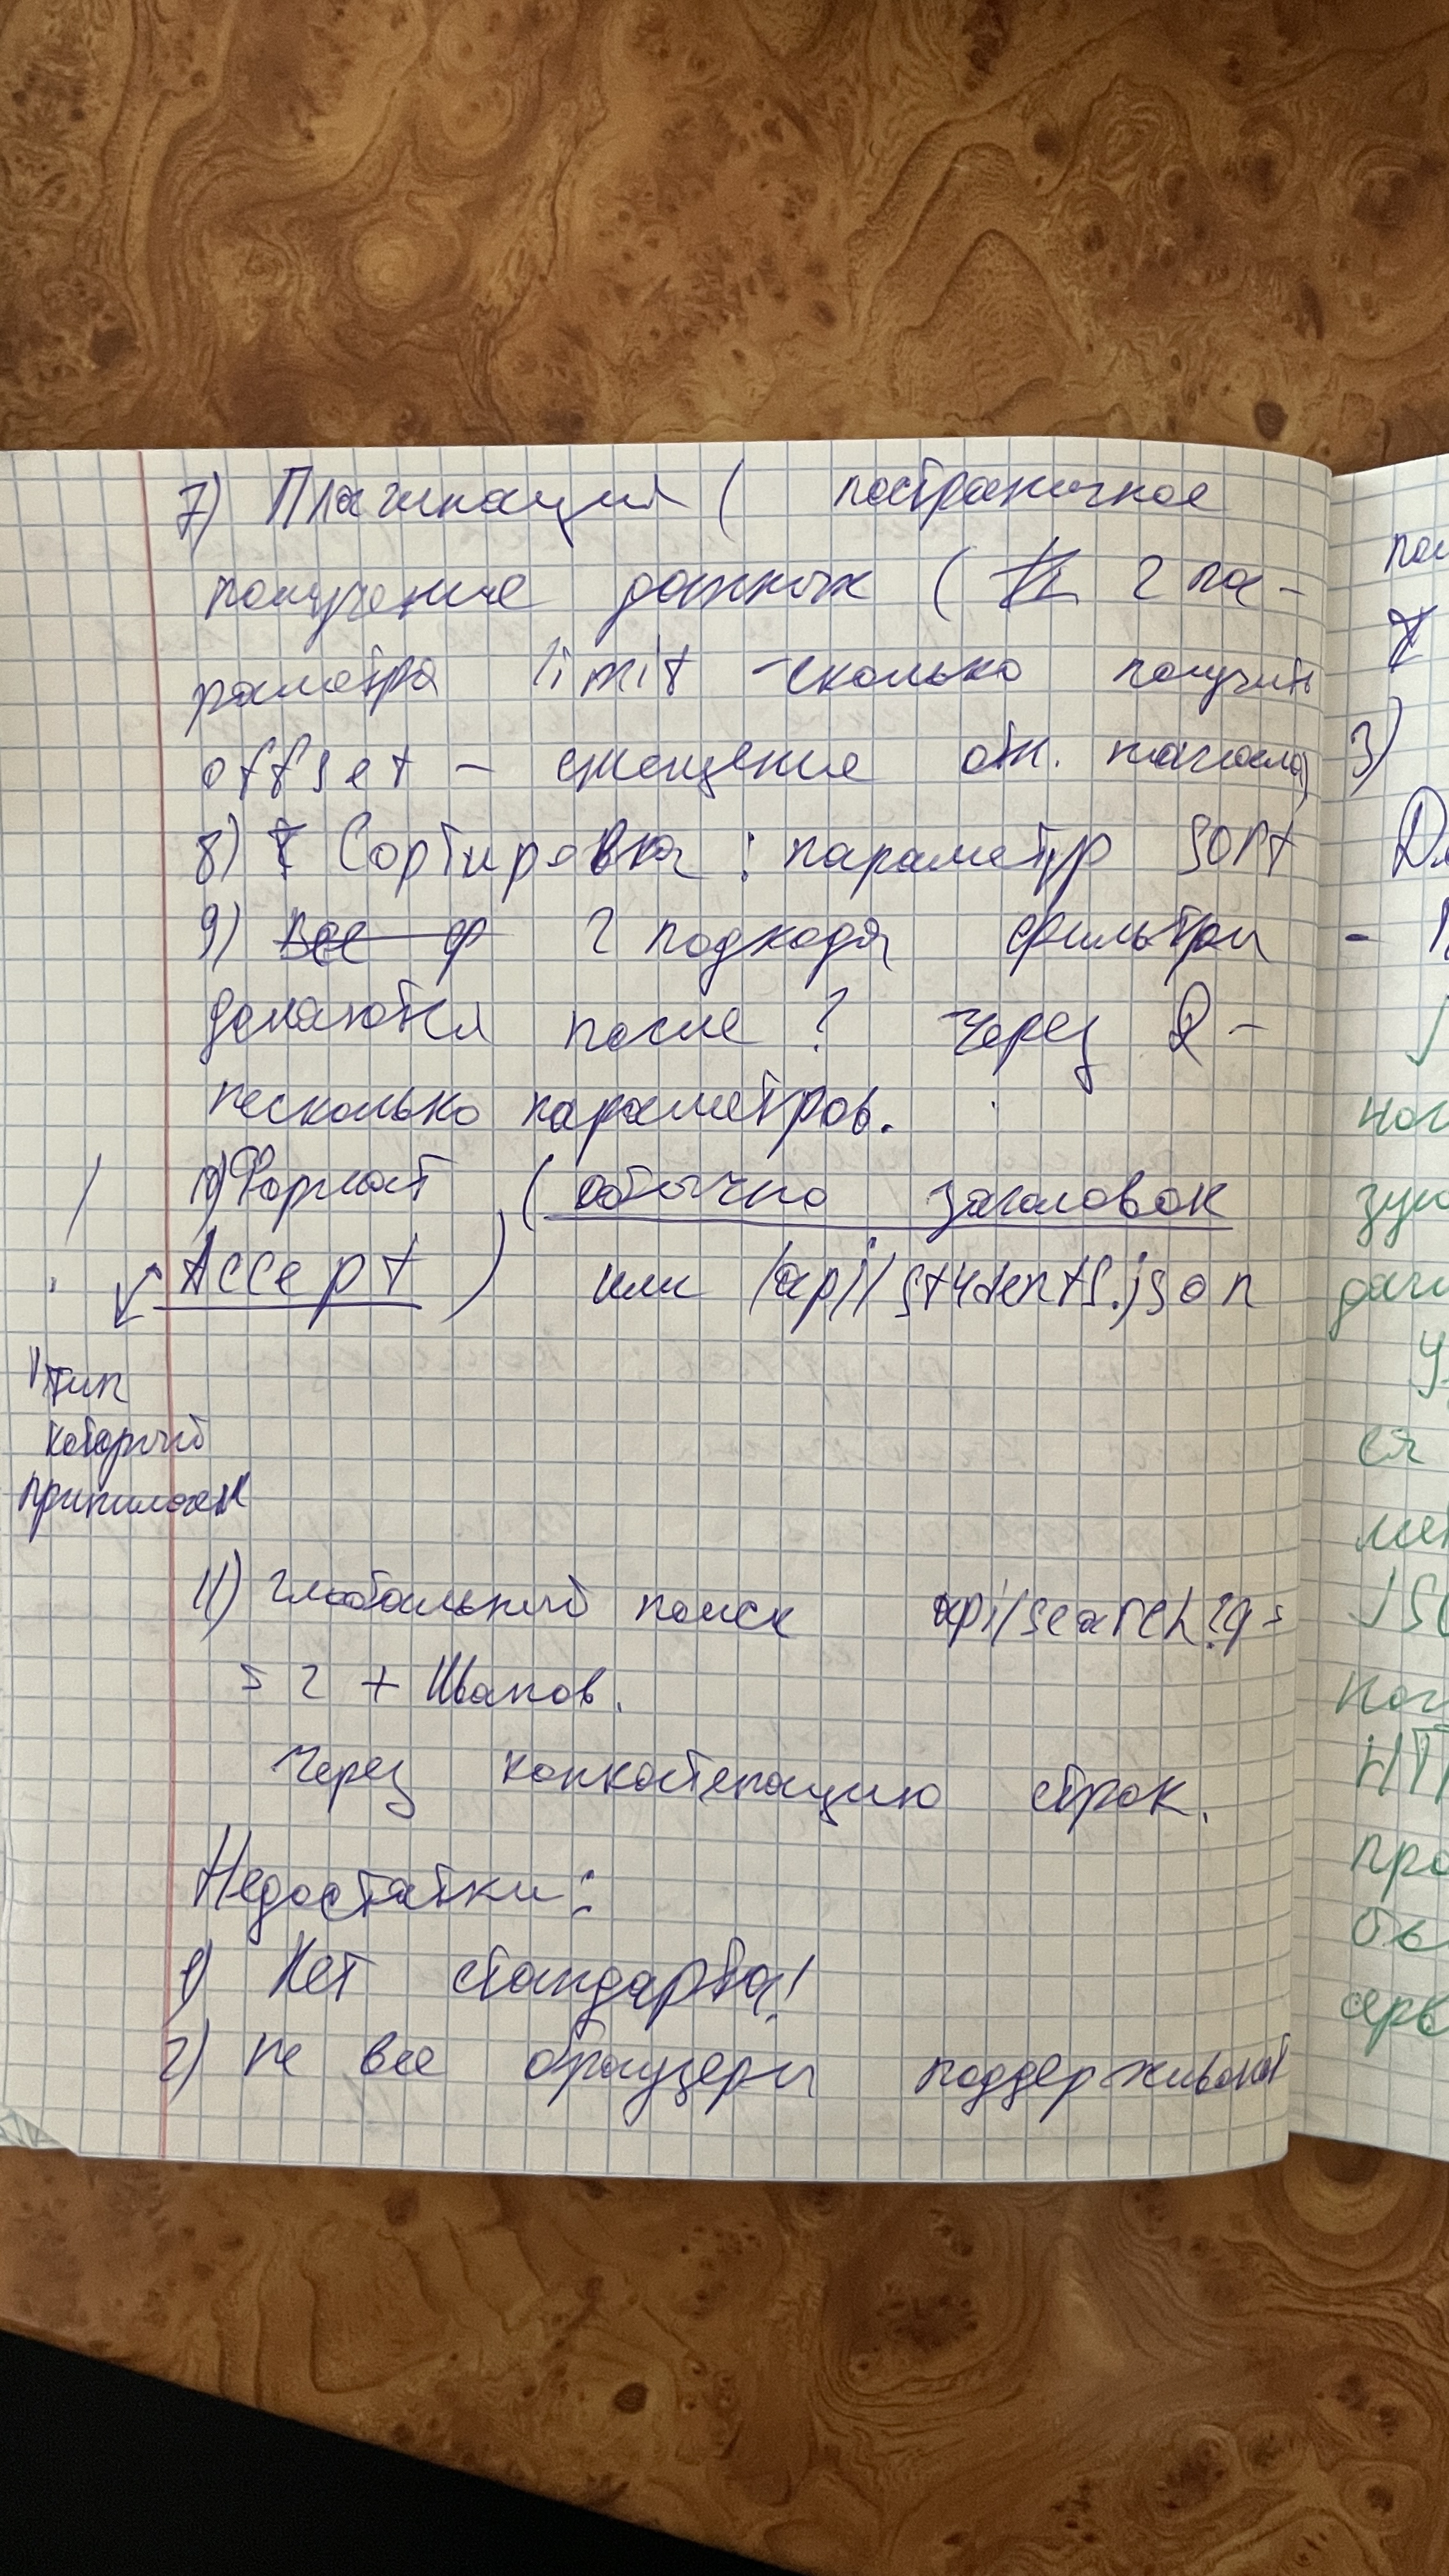 7) Плагинация ( постраничное
получение данных ( 2 па-
раметра limit - сколько получить
offset - смещение отн. начала)
8) Сортировка : параметр sort
9) Все ф 2 подхода фильтры
делаются после ? через &-
несколько параметров.
10) Формат ( обычно заголовок
Accept ) или /api/students.json
тип
который
принимаем
11) глобальный поиск api/search?q=
= 2 + Иванов.
Через конкатенацию строк.
Недостатки:
1) Нет стандарта!
2) не все браузеры поддерживают
3)